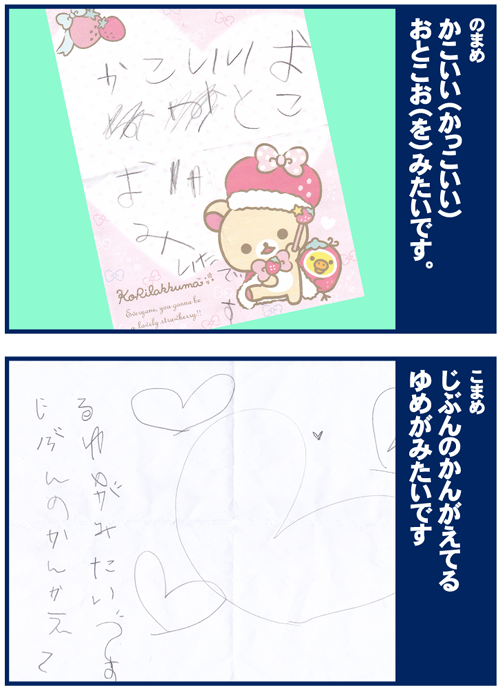 のまめ
かこいい(かっこいい)
おとこお(を)みたいです。
かこいいお
とこ
お
みたいです
KoRilakkuma
Everyone, you gonna be
a lovely strawberry!!
こまめ
じぶんのかんがえてる
ゆめがみたいです
じぶんのかんがえて
るゆめがみたいです